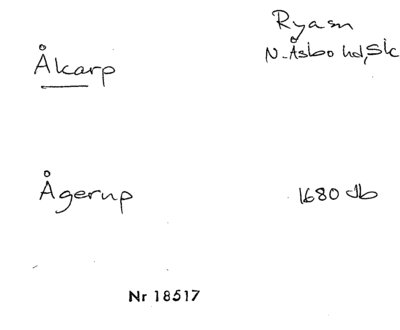 Ryasn
N-Åsbo hd, Sk
Åkarp
Ågerup
1680 db
Nr 18517